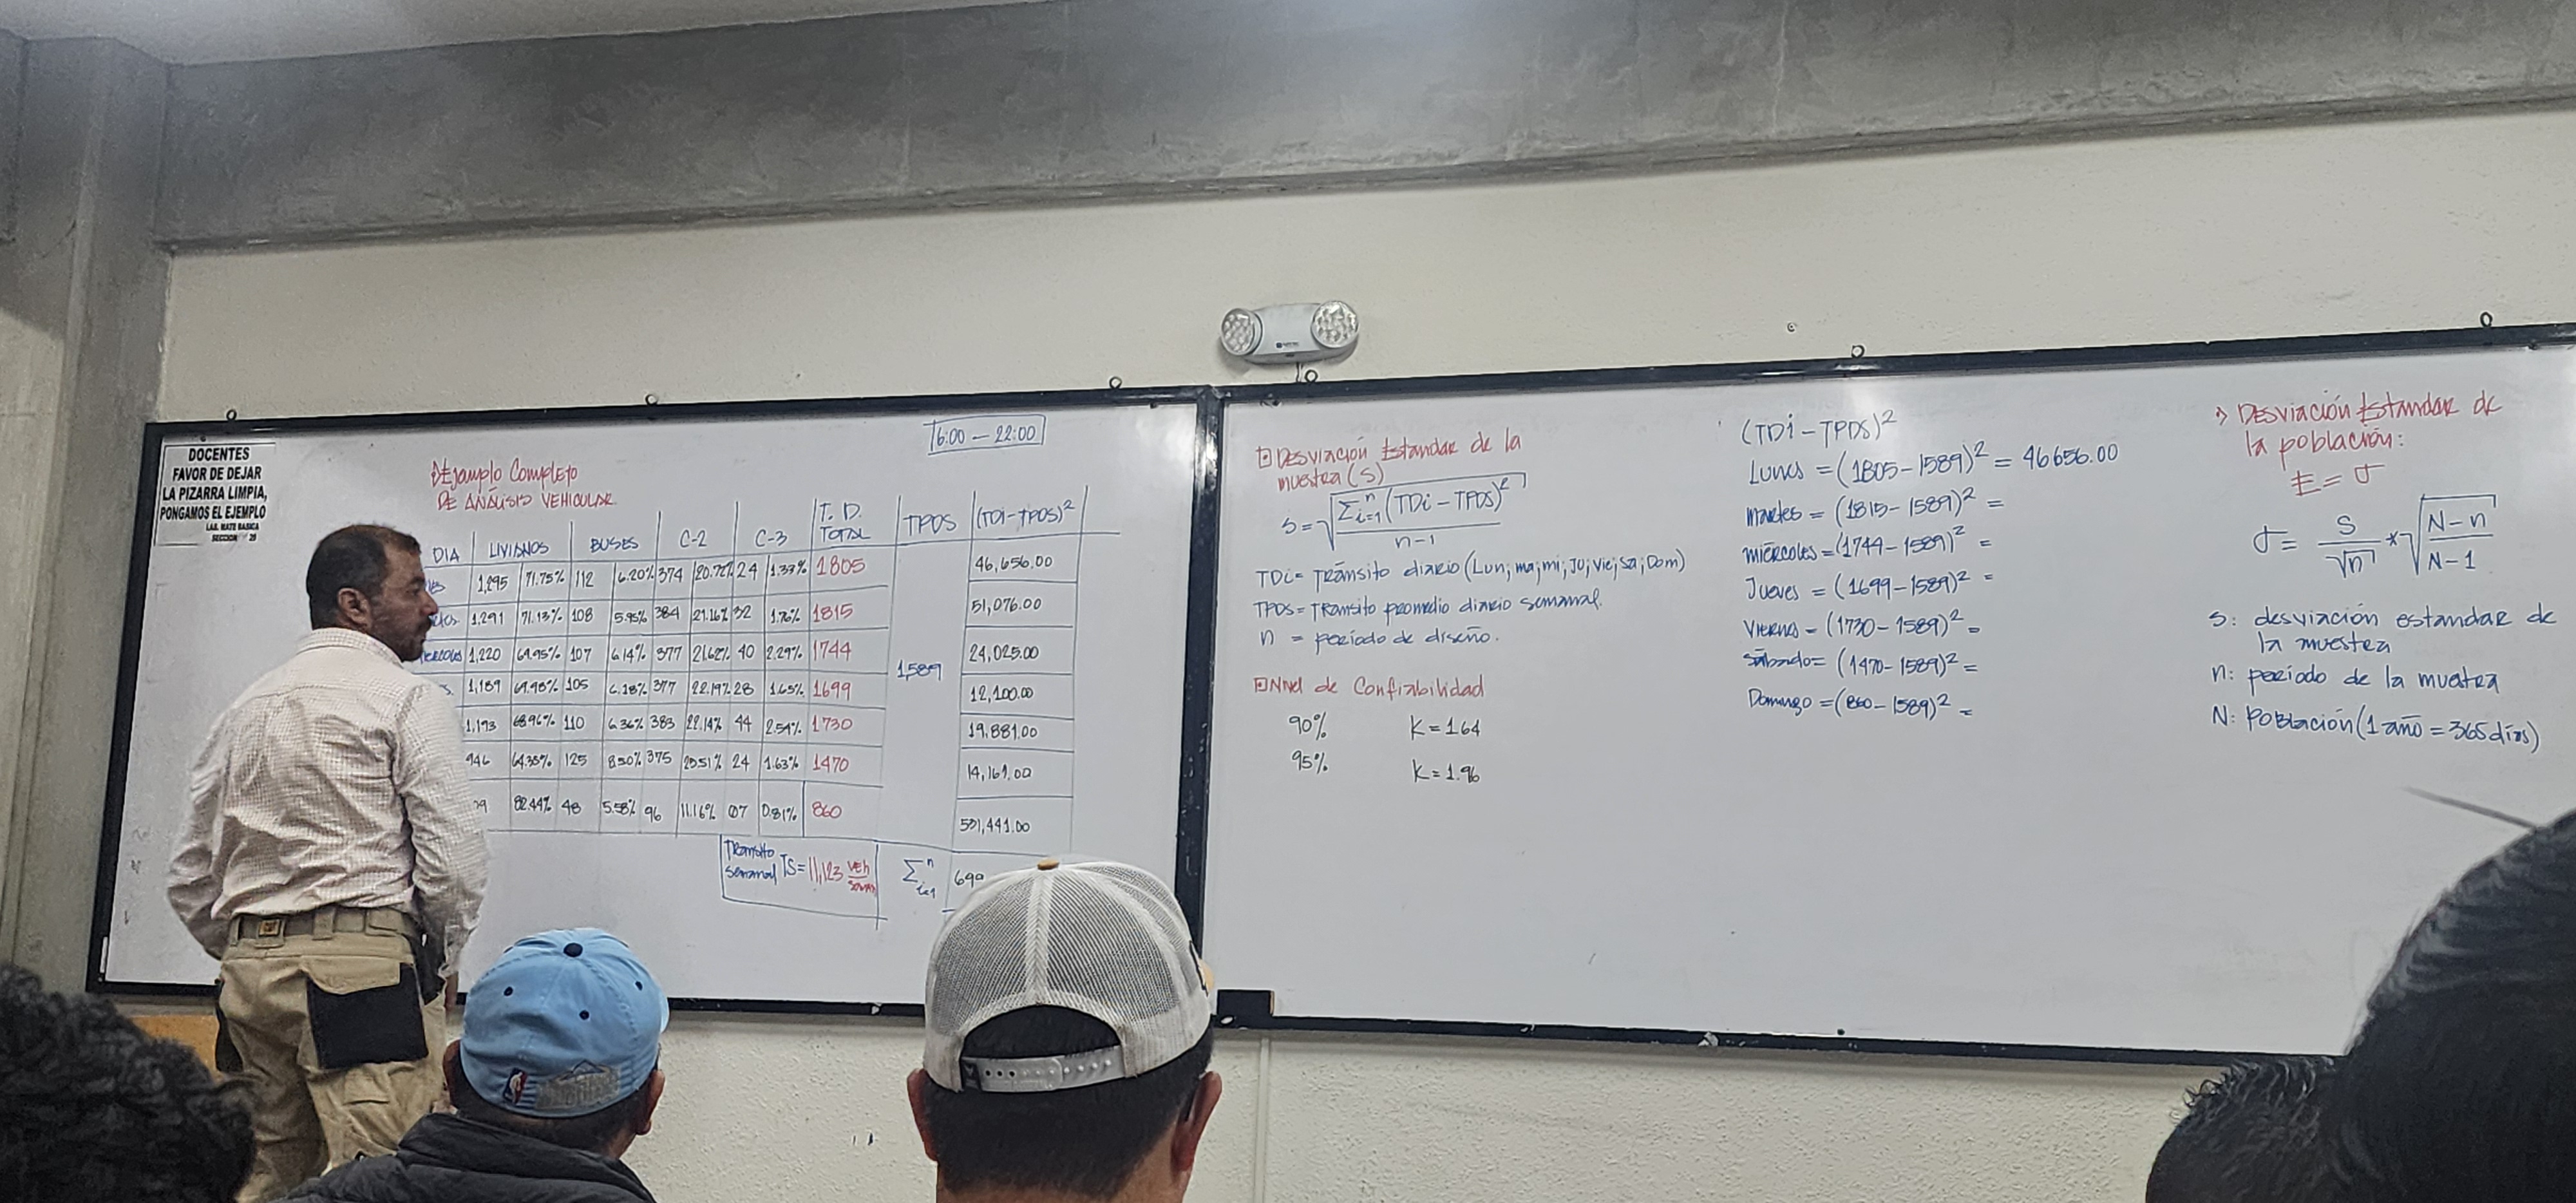 DOCENTES
FAVOR DE DEJAR
LA PIZARRA LIMPIA,
PONGAMOS EL EJEMPLO
LAB. MATE BASICA
SECCION
16:00 - 22:00
Ejemplo Completo
DE ANÁLISIS VEHICULAR
DIA LIVIANOS BUSES C-2 C-3 T. D. TOTAL TPDS (TDi-TPDS)²
1,295 71.75% 112 6.20% 374 20.72% 24 1.33% 1805 46,656.00
1,291 71.13% 108 5.95% 384 21.16% 32 1.76% 1815 51,076.00
1,220 69.95% 107 6.14% 377 21.62% 40 2.29% 1744 24,025.00
1,589
1,189 69.98% 105 6.18% 377 22.19% 28 1.65% 1699 12,100.00
1,193 68.96% 110 6.36% 383 22.14% 44 2.54% 1730 19,881.00
946 64.35% 125 8.50% 375 25.51% 24 1.63% 1470 14,161.00
82.44% 48 5.58% 96 11.16% 07 0.81% 860 531,441.00
Transito
Semanal TS = 11,123 veh
Σ n i=1 699
Desviación Estandar de la
muestra (S)
S = √ Σ n i=1 (TDi - TPDS)² / n-1
TDi = Tránsito diario (Lun; ma; mi; Ju; Vie; Sa; Dom)
TPDS = Transito promedio diario semanal.
n = periodo de diseño.
Nivel de Confiabilidad
90% K = 1.64
95% K = 1.96
(TDi - TPDS)²
Lunes = (1805 - 1589)² = 46656.00
martes = (1815 - 1589)² =
miércoles = (1744 - 1589)² =
Jueves = (1699 - 1589)² =
Viernes = (1730 - 1589)² =
sábado = (1470 - 1589)² =
Domingo = (860 - 1589)² =
Desviación Estandar de
la población:
E = σ
σ = S/√n * √ N-n / N-1
s: desviación estandar de
la muestra
n: periodo de la muestra
N: Población (1 año = 365 días)